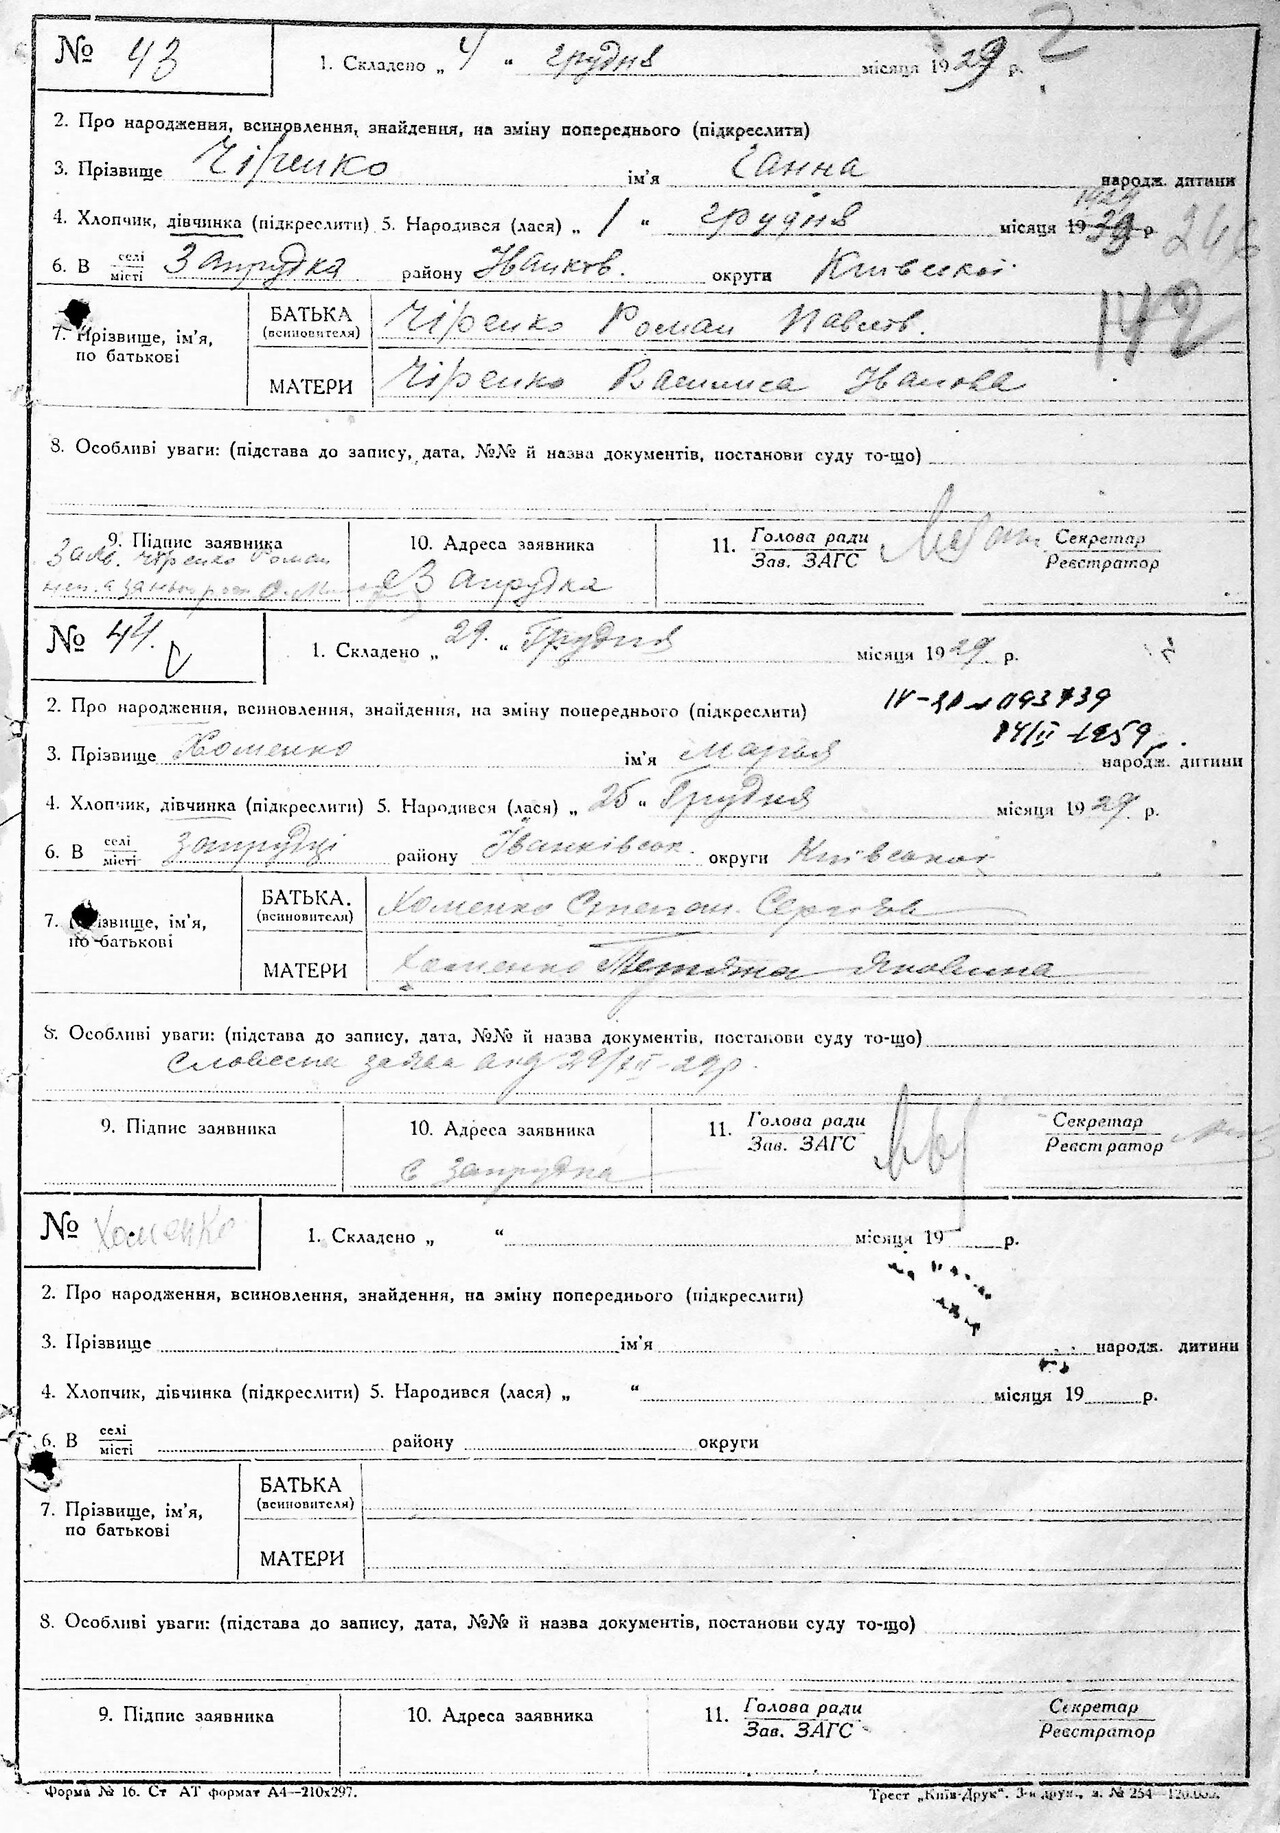 2
№ 43 1. Складено „ 4 “ грудня місяця 1929 р.
2. Про народження, всиновлення, знайдення, на зміну попереднього (підкреслити)
3. Прізвище Чіренко ім'я Ганна народж. дитини
1929
4. Хлопчик, дівчинка (підкреслити) 5. Народився (лася) „ 1 “ грудня місяця 1939 р. 246
6. В селі/місті Запрудка району Іванков. округи Київської
142
7. Прізвище, ім'я, по батькові БАТЬКА (всиновителя) Чіренко Роман Павлов.
МАТЕРИ Чіренко Василиса Іванова
8. Особливі уваги: (підстава до запису, дата, №№ й назва документів, постанови суду то-що)
9. Підпис заявника 10. Адреса заявника 11. Голова ради/Зав. ЗАГС Секретар/Реєстратор
Заяв. Чіренко Роман
с Запрудка
№ 44. 1. Складено „ 29. “ Грудня місяця 1929 р.
2. Про народження, всиновлення, знайдення, на зміну попереднього (підкреслити)
093739
14/II-1959р.
3. Прізвище Хоменко ім'я Марья народж. дитини
4. Хлопчик, дівчинка (підкреслити) 5. Народився (лася) „ 25 “ Грудня місяця 1929 р.
6. В селі/місті Запрудці району Іванківськ. округи Київської
7. Прізвище, ім'я, по батькові БАТЬКА. (всиновителя) Хоменко Степан. Сергієв
МАТЕРИ Хоменко Тетяна Яковина
8. Особливі уваги: (підстава до запису, дата, №№ й назва документів, постанови суду то-що)
Словесна заява від 29/XII-29р.
9. Підпис заявника 10. Адреса заявника 11. Голова ради/Зав. ЗАГС Секретар/Реєстратор
с Запрудка
№ Хоменко 1. Складено „ “ місяця 19 р.
2. Про народження, всиновлення, знайдення, на зміну попереднього (підкреслити)
3. Прізвище ім'я народж. дитини
4. Хлопчик, дівчинка (підкреслити) 5. Народився (лася) „ “ місяця 19 р.
6. В селі/місті району округи
7. Прізвище, ім'я, по батькові БАТЬКА (всиновителя)
МАТЕРИ
8. Особливі уваги: (підстава до запису, дата, №№ й назва документів, постанови суду то-що)
9. Підпис заявника 10. Адреса заявника 11. Голова ради/Зав. ЗАГС Секретар/Реєстратор
Форма № 16. Ст АТ формат А4—210х297. Трест „Київ-Друк". 3-я друк., з. № 254—120.000.